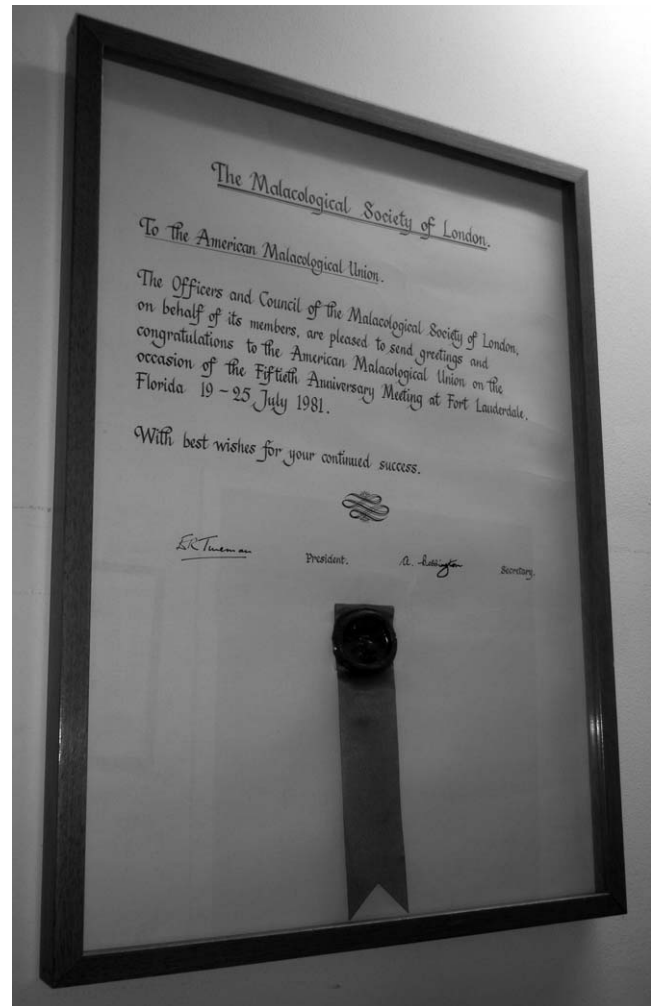 The Malacological Society of London.
To the American Malacological Union.
The Officers and Council of the Malacological Society of London,
on behalf of its members, are pleased to send greetings and
congratulations to the American Malacological Union on the
occasion of the Fiftieth Anniversary Meeting at Fort Lauderdale,
Florida 19 – 25 July 1981.
With best wishes for your continued success.
President. Secretary.